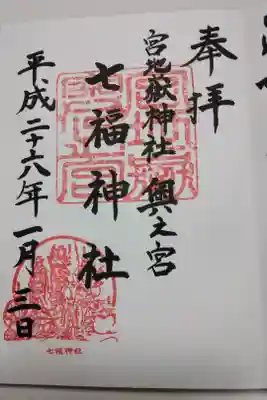 奉拝
宮地嶽神社 奥之宮
七福神社
平成二十六年一月三日
七福神社